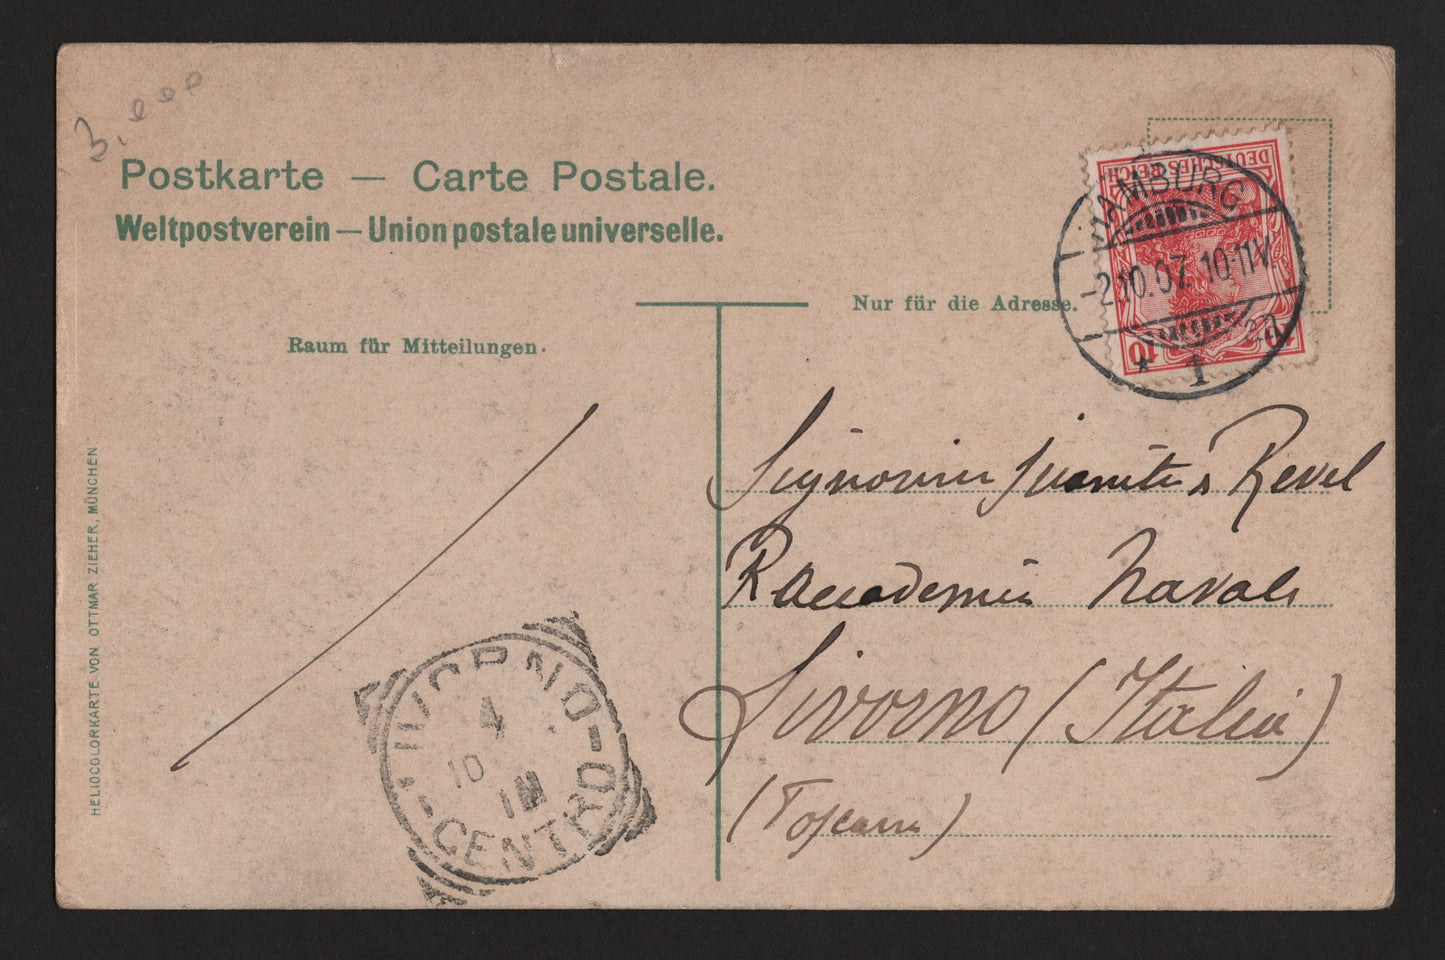 3.
Postkarte — Carte Postale.
Weltpostverein — Union postale universelle.
Nur für die Adresse.
Raum für Mitteilungen.
DEUTSCHES REICH
HAMBURG
2.10.07. 10-11V.
* 1
10 10
Revel
R Accademia Navale
Livorno (Italia)
(Toscana)
LIVORNO
4
10
CENTRO
HELIOCOLORKARTE VON OTTMAR ZIEHER, MÜNCHEN